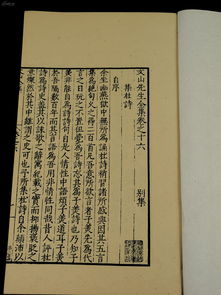 文山先生全集卷之十六　別集
集杜詩
自序
余坐幽燕獄中無所為誦杜詩稍習諸所感興因其五言
集為絕句久之得二百首凡吾意所欲言者子美先為代
言之日玩之不置但覺為吾詩忘其為子美詩也乃知子
美非能自為詩詩句自是人情性中語煩子美道耳子美
於吾隔數百年而其言語為吾用非情性同哉昔人評杜
詩為詩史蓋其以詠歌之辭寓紀載之實而抑揚褒貶之
意燦然於其中雖謂之史可也予所集杜詩自余顛沛以